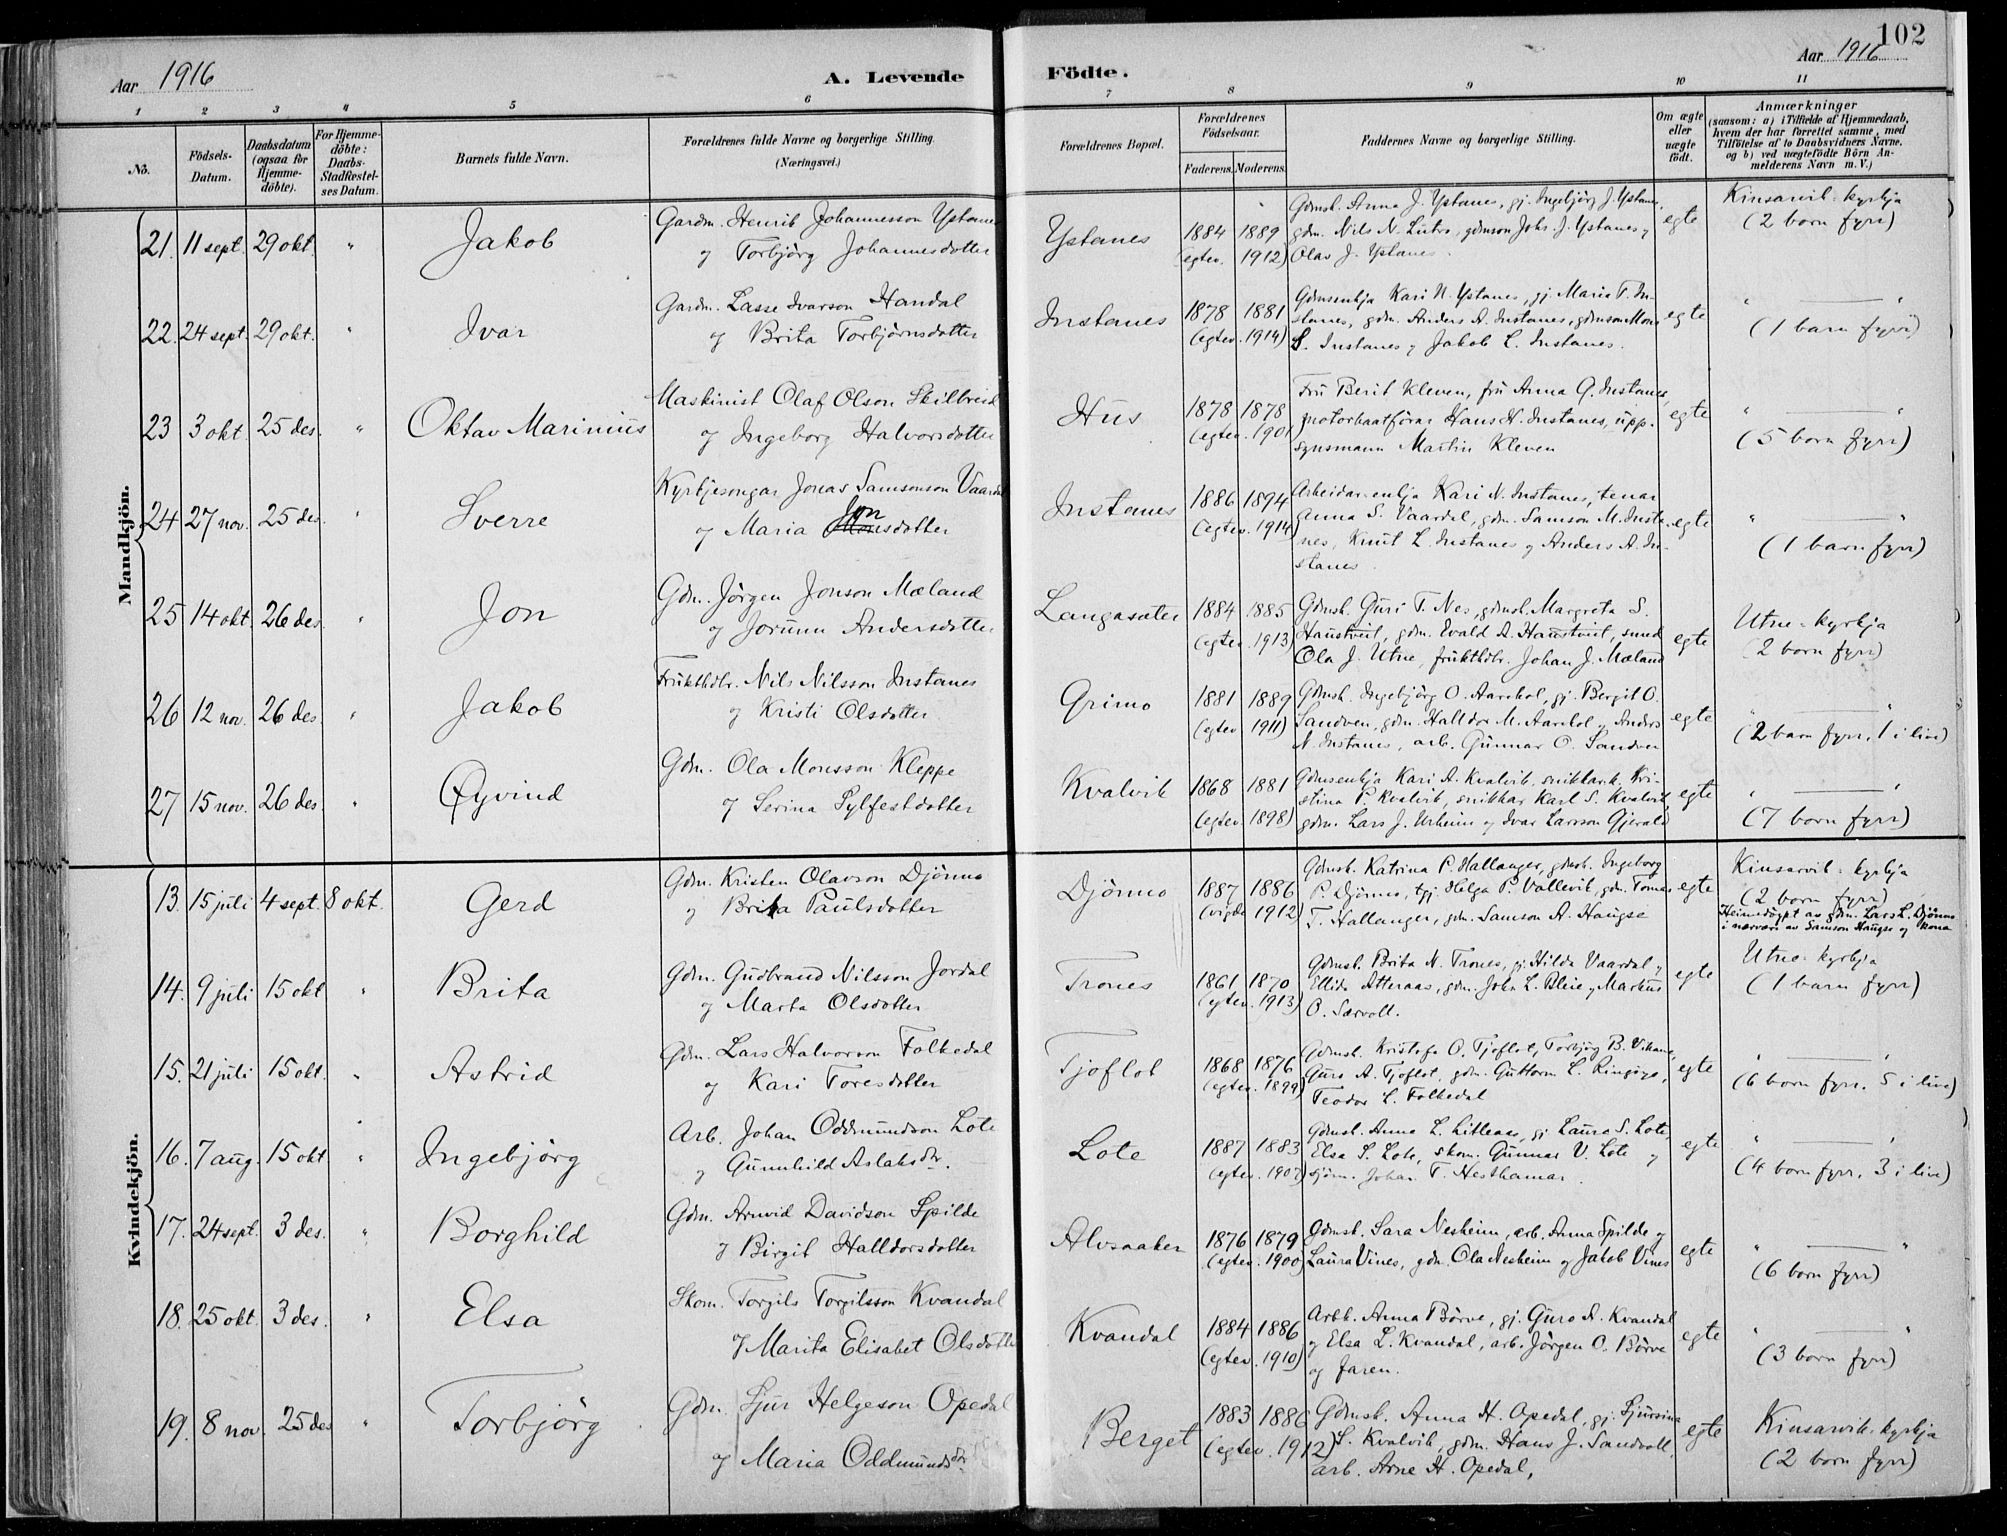 102
Aar 1916 A. Levende Födte. Aar 1916
1 2 3 4 5 6 7 8 9 10 11
No.
Födsels-
Datum.
Daabsdatum
(ogsaa for
Hjemme-
döbte).
For Hjemme-
döbte:
Daabs-
Stadfæstel-
ses Datum.
Barnets fulde Navn.
Forældrenes fulde Navne og borgerlige Stilling.
(Næringsvei.)
Forældrenes Bopæl.
Forældrenes
Födselsaar.
Faderens. Moderens.
Faddernes Navne og borgerlige Stilling.
Om ægte
eller
uægte
födt.
Anmærkninger
(saasom: a) i Tilfælde af Hjemmedaab,
hvem der har forrettet samme, med
Tilföielse af to Daabsvidners Navne,
og b) ved uægtefödte Börn An-
melderens Navn m. V.)
Mandkjön.
21. 11 sept. 29 okt. " Jakob
Gardm. Henrik Johannesson Ystanes
og Torbjörg Johannesdotter
Ystanes 1884 1889
(egtev. 1912)
Gdmsk. Anna J. Ystanes, gj. Ingebjörg J. Ystanes,
gdm. Nils N. Lutro, gdmson Johs. J. Ystanes og
Olav J. Ystanes.
egte
Kinsarvik-kyrkja
(2 born fyrr)
22. 24 sept. 29 okt. " Ivar
Gardm. Lasse Ivarson Handal
og Brita Torbjörnsdotter
Instanes 1878 1881
(egtev. 1914)
Gdmsenkja Kari N. Ystanes, gj. Maria T. In-
stanes, gdm. Anders A. Instanes, gdmson Mons
S. Instanes og Jakob L. Instanes.
egte
" — "
(1 barn fyrr)
23 3 okt. 25 des. " Oktav Marinius
Maskinist Olaf Olson Skilbreid
og Ingeborg Halvorsdotter
Hus 1878 1878
(egtev. 1901
Fru Berit Kleven, fru Anna G. Instanes,
motorbaatförar Hans H. Instanes, upp-
synsmann Martin Kleven
egte
" — "
(5 born fyrr)
24 27 nov. 25 des. " Sverre
Kyrkjesongar Jonas Samsonson Vaardal
Jon
og Maria Monsdotter
Instanes 1886 1894
(egtev. 1914)
Arbeidar-enkja Kari N. Instanes, tenar
Anna S. Vaardal, gdm. Samson M. Insta-
nes, Knut L. Instanes og Anders A. In-
stanes.
egte
" — "
(1 barn fyrr)
25 14 okt. 26 des. " Jon
Gdm. Jörgen Jonson Mæland
og Jorunn Andersdotter
Langasæter 1884 1885
(egtev. 1913)
Gdmsk. Guri T. Nes, gdmsk. Margreta S.
Haustveit, gdm. Evald A. Haustveit, smed
Ola J. Utne, frukthdlr. Johan J. Mæland
egte
Utne-kyrkja
(2 born fyrr)
26 12 nov. 26 des. " Jakob
Frukthdlr. Nils Nilsson Instanes
og Kristi Olsdotter
Grimo 1881 1889
(egtev 1911)
Gdmsk. Ingebjörg O. Aarekol, gj. Bergit O.
Sandven, gdm. Halldor M. Aarekol og Anders
N. Instanes, arb. Gunnar O. Sandven
egte
" — "
(2 barn fyrr, 1 i live)
27 15 nov. 26 des. " Öyvind
Gdm. Ola Monsson Kleppe
og Serina Sylfestdotter
Kvalvik 1868 1881
(egtev. 1898)
Gdmsenkja Kari A. Kvalvik, snikkark. Kri-
stina P. Kvalvik, snikkar Karl S. Kvalvik,
gdm. Lars J. Urheim og Ivar Larsson Gjerald
egte
" — "
(7 born fyrr)
Kvindekjön.
13. 15 juli 4 sept. 8 okt. Gerd
Gdm. Kristen Olavson Djönno
og Brita Paulsdotter
Djönno 1887 1886
(vigde 1912)
Gdmsk. Katrina P. Hallanger, gdmsk. Ingeborg
P. Djönno, tgj. Helga P. Vallevik, gdm. Tomas
T. Hallanger, gdm. Samson A. Haugse
egte
Kinsarvik-kyrkja
(2 born fyrr)
Heimedöypt av gdm. Lars L. Djönno
i nærvære av Samson Haugse og kona
14. 9 juli 15 okt " Brita
Gdm. Gudbrand Nilsson Jordal
og Marta Olsdotter
Trones 1861 1870
(egtev. 1913)
Gdmsk. Brita N. Trones, gj. Hilda Vaardal og
Ellida Atteraas, gdm. John L. Bleie og Markus
O. Særvoll.
egte
Utne-kyrkja
(1 barn fyrr)
15. 21 juli 15 okt. " Astrid
Gdm. Lars Halvorson Folkedal
og Kari Toresdotter
Tjoflot 1868 1876
(egtev. 1899)
Gdmsk. Kristofa O. Tjoflot, Torbjörg B. Vikane,
Guro A. Tjoflot, gdm. Guttorm L. Ringöyo,
Teodor L. Folkedal
egte
" — "
(6 born fyrr, 5 i live)
16. 7 aug. 15 okt " Ingebjörg
Arb. Johan Oddmundson Lote
og Gunnhild Aslaksdtr.
Lote 1887 1883
(egtev. 1907)
Gdmsk. Anna L. Litleaas, gj. Laura S. Lote,
Elsa S. Lote, skom. Gunnar V. Lote og
sjöm. Johan T. Hesthamar.
egte
" — "
(4 born fyrr, 3 i live)
17. 24 sept. 3 des. " Borghild
Gdm. Arnvid Davidson Spilde
og Birgit Halldorsdotter
Alvsaaker 1876 1879
(egtev. 1900)
Gdmsk. Sara Nesheim, arb. Anna Spilde og
Laura Vines, gdm. Ola Nesheim og Jakob Vines
egte
" — "
(6 born fyrr)
18. 25 okt. 3 des. " Elsa
Skom. Torgils Torgilsson Kvandal
og Marita Elisabet Olsdotter
Kvandal 1884 1886
(egtev. 1910)
Arbk. Anna Börve, gj. Guro A. Kvandal
og Elsa L. Kvandal, arb. Jörgen O. Börve
og faren.
egte
" — "
(3 born fyrr)
19. 8 nov 25 des " Torbjörg
Gdm. Sjur Helgeson Opedal
og Maria Oddmundsdtr
Berget 1883 1886
(egtev. 1912)
Gdmsk. Anna H. Opedal, gj. Sjursina
S. Kvalvik, gdm. Hans J. Sandvoll,
arb. Arne H. Opedal,
egte
Kinsarvik-kyrkja
(2 born fyrr)